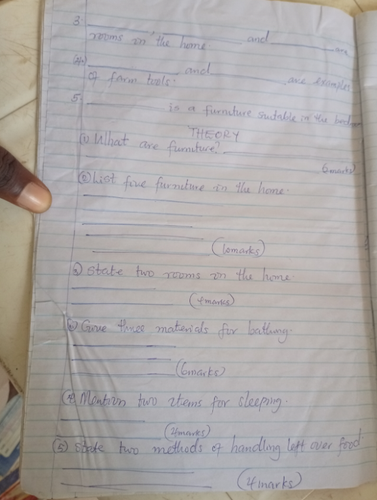 3. ________ and ________ are
rooms in the home
(4) ________ and ________ are examples
of farm tools.
5. ________ is a furniture suitable in the bedroom
THEORY
(1) What are furniture?
6marks)
(2) List five furniture in the home.
(10marks)
State two rooms in the home
(4marks)
Give three materials for bathing.
(6marks)
(4) Mention two items for sleeping.
(4marks)
(5) State two methods of handling left over food
(4marks)